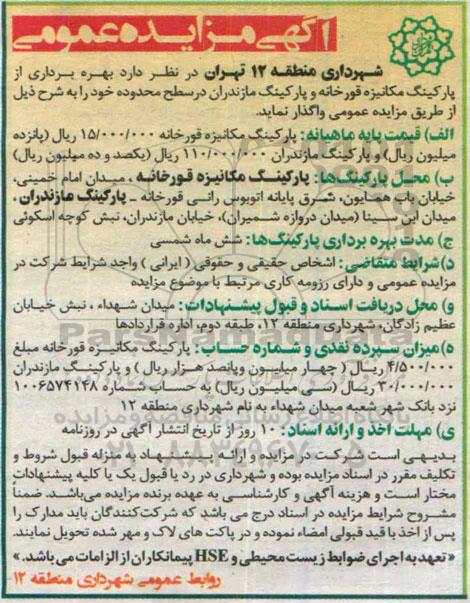 آگهی مزایده عمومی
شهرداری منطقه ۱۲ تهران در نظر دارد بهره برداری از
پارکینگ مکانیزه قورخانه و پارکینگ مازندران درسطح محدوده خود را به شرح ذیل
از طریق مزایده عمومی واگذار نماید.
الف) قیمت پایه ماهیانه: پارکینگ مکانیزه قورخانه ۱۵/۰۰۰/۰۰۰ ریال (پانزده
میلیون ریال) و پارکینگ مازندران ۱۱۰/۰۰۰/۰۰۰ ریال (یکصد و ده میلیون ریال)
ب) محل پارکینگ‌ها: پارکینگ مکانیزه قورخانه، میدان امام خمینی،
خیابان باب همایون، شرق پایانه اتوبوس رانی قورخانه ـ پارکینگ مازندران،
میدان ابن سینا (میدان دروازه شمیران)، خیابان مازندران، نبش کوچه اسکوئی
ج) مدت بهره برداری پارکینگ‌ها: شش ماه شمسی
د) شرایط متقاضی: اشخاص حقیقی و حقوقی ( ایرانی ) واجد شرایط شرکت در
مزایده عمومی و دارای رزومه کاری مرتبط با موضوع مزایده
و) محل دریافت اسناد و قبول پیشنهادات: میدان شهداء ، نبش خیابان
عظیم زادگان، شهرداری منطقه ۱۲، طبقه دوم، اداره قراردادها
ه) میزان سپرده نقدی و شماره حساب: پارکینگ مکانیزه قورخانه مبلغ
۴/۵۰۰/۰۰۰ ریال ( چهار میلیون وپانصد هزار ریال ) و پارکینگ مازندران
۳۰/۰۰۰/۰۰۰ ریال (سی میلیون ریال) به حساب شماره ۱۰۰۶۵۷۴۱۴۸
نزد بانک شهر شعبه میدان شهداء به نام شهرداری منطقه ۱۲
ی) مهلت اخذ و ارائه اسناد: ۱۰ روز از تاریخ انتشار آگهی در روزنامه
بدیهی است شرکت در مزایده و ارائه پیشنهاد به منزله قبول شروط و
تکلیف مقرر در اسناد مزایده بوده و شهرداری در رد یا قبول یک یا کلیه پیشنهادات
مختار است و هزینه آگهی و کارشناسی به عهده برنده مزایده می‌باشد. ضمنا
مشروح شرایط مزایده در اسناد درج می باشد که شرکت‌کنندگان باید مدارک را
پس از اخذ با قید قبولی امضاء نموده و در پاکت های لاک و مهر شده تحویل نمایند.
« تعهد به اجرای ضوابط زیست محیطی و HSE پیمانکاران از الزامات می باشد. »
روابط عمومی شهرداری منطقه ۱۲